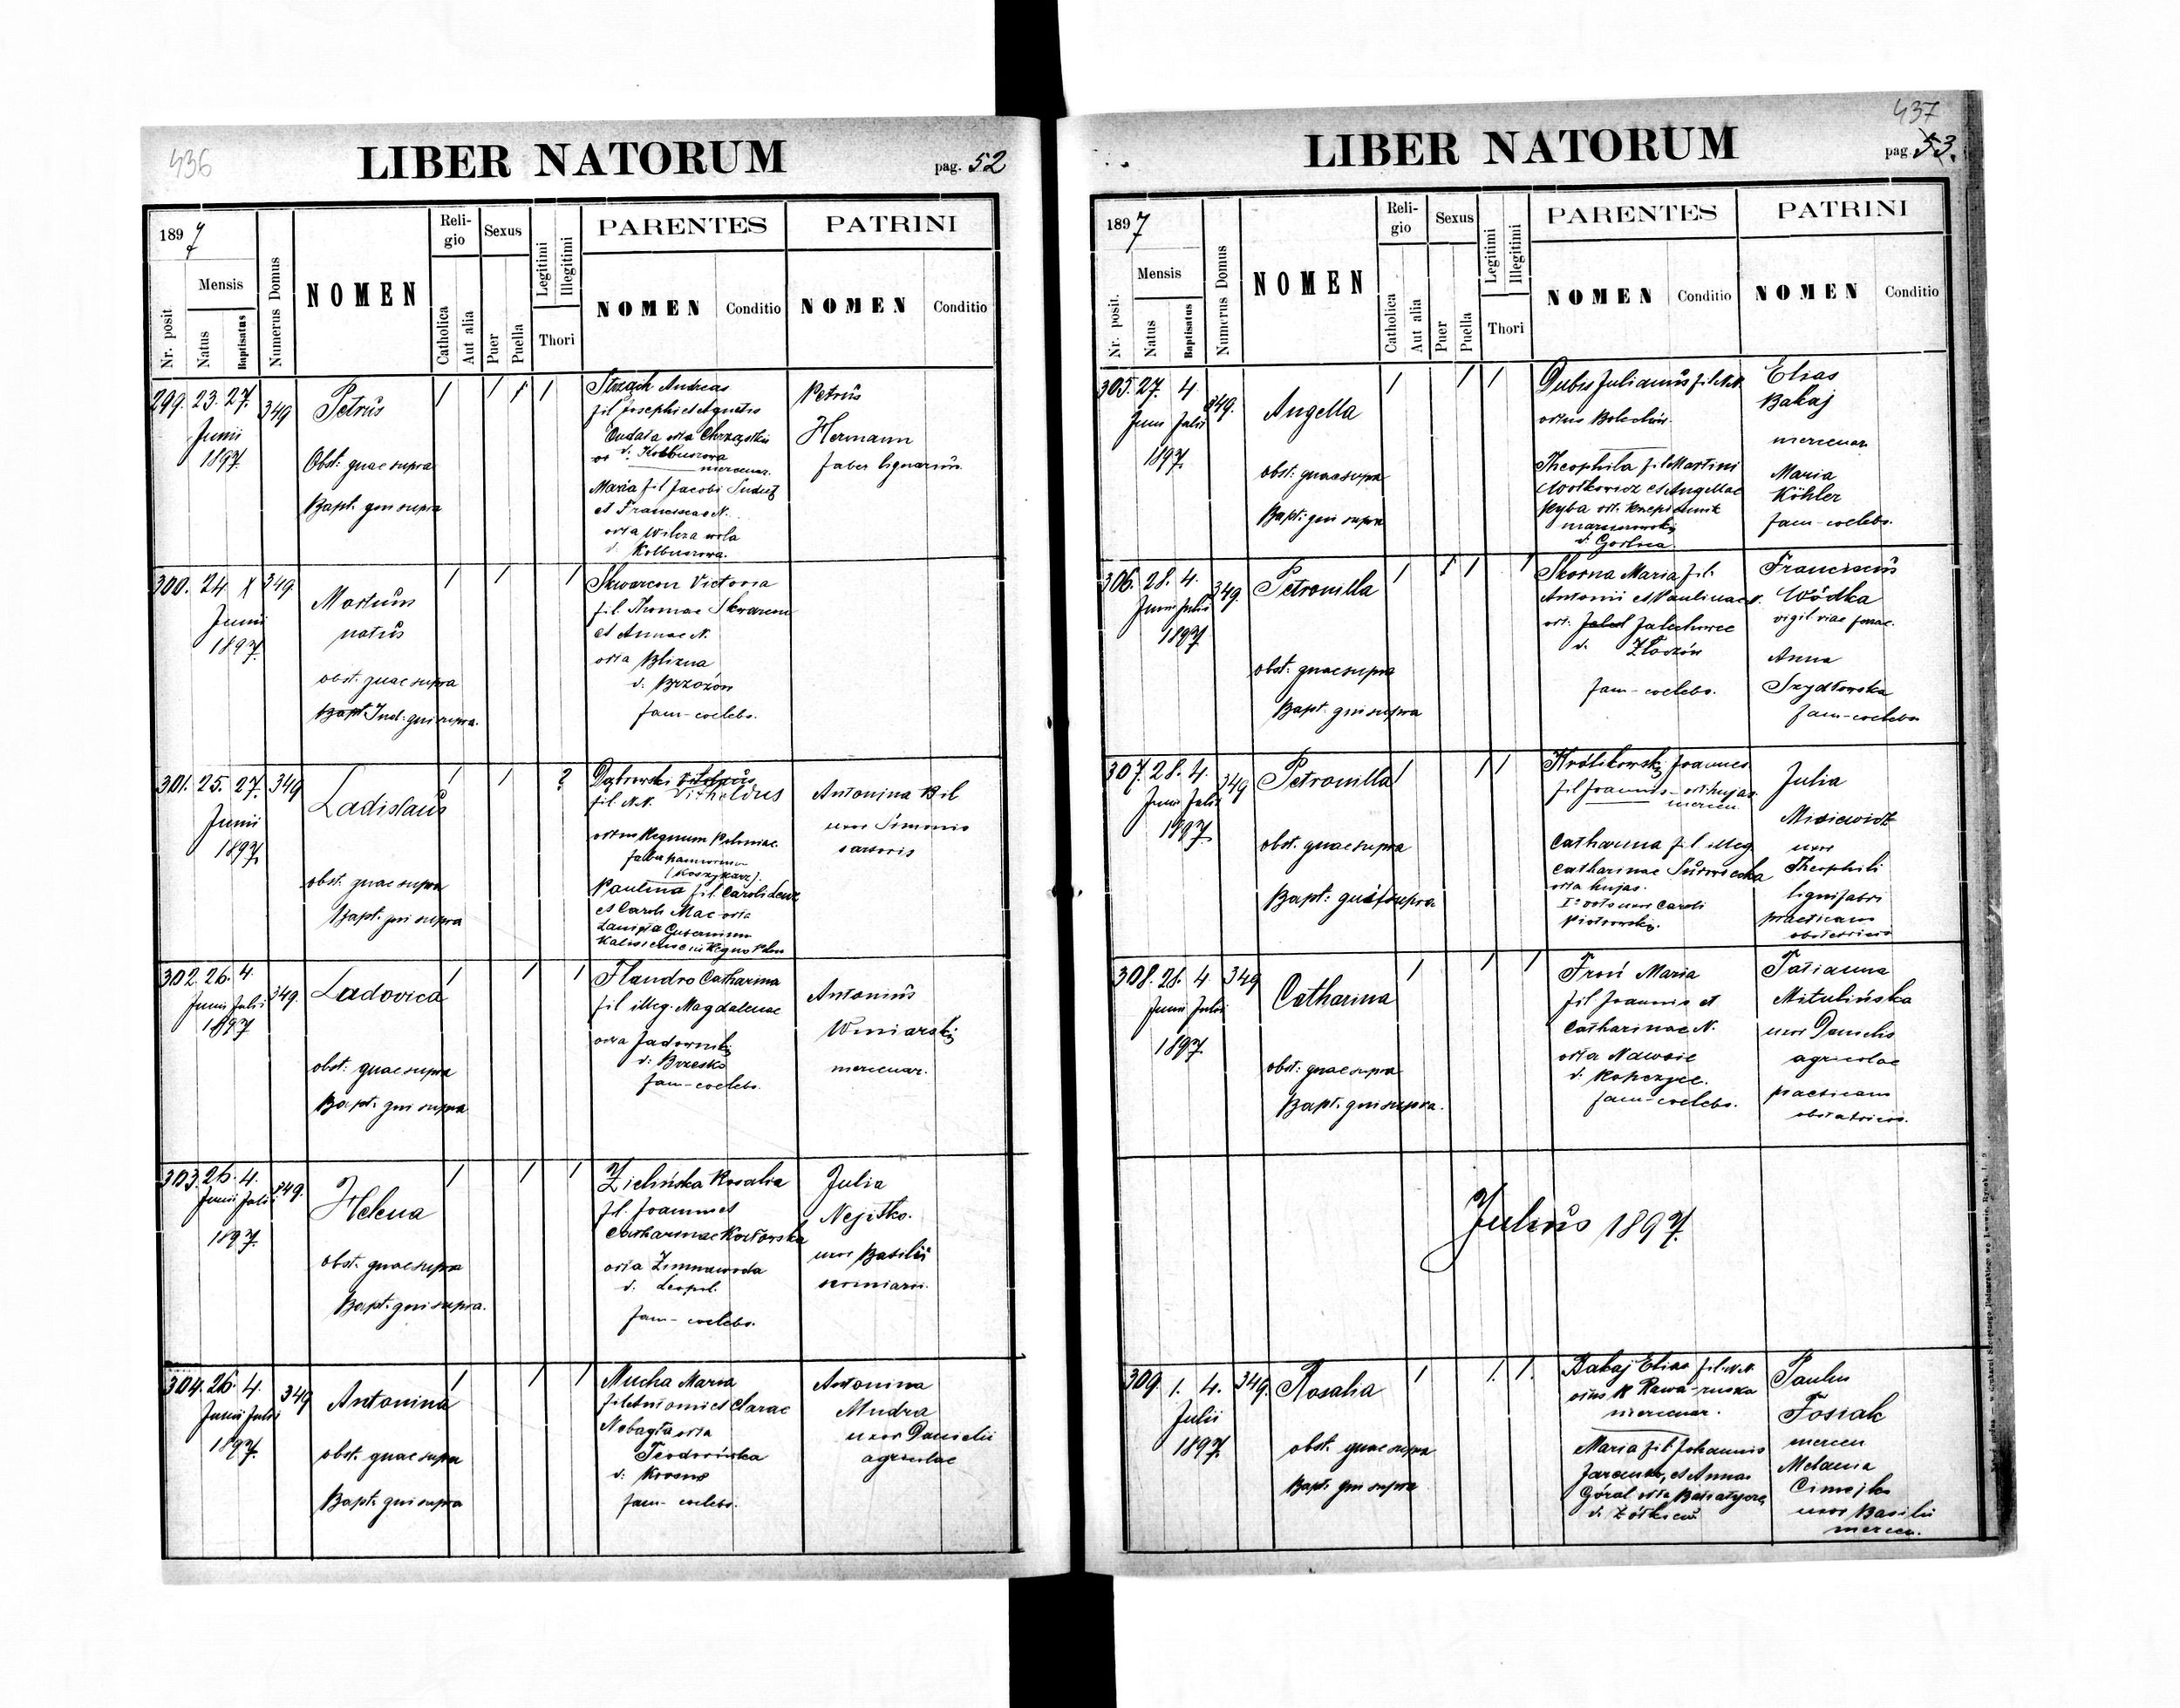 436
LIBER NATORUM
pag. 52
1897
Nr. posit
Mensis
Natus
Baptisatus
Numerus Domus
NOMEN
Religio
Catholica
Aut alia
Sexus
Puer
Puella
Legitimi
Illegitimi
Thori
PARENTES
NOMEN
Conditio
PATRINI
NOMEN
Conditio
299. 23. 27. 349
Junii
1897
Petrus
Obst: quae supra
Bapt. qui supra
Andreas
fil Josephi et Agnetis
d. Kolbuszowa
mercenar.
Maria fil Jacobi
et Franciscae N.
orta Wilcza wola
d. Kolbuszowa.
Petrus
Hermann
faber lignarius.
300. 24 X 349.
Junii
1897.
Mortuus
natus
obst. quae supra
Bapt. Ind: qui supra.
Skwarcon Victoria
fil. Thomae Skwarcon
et Annae N.
orta Blizna
d. Brzozów
fam-coelebs.
301. 25. 27. 349
Junii
1897.
Ladislaus
obst. quae supra
Bapt. qui supra
?
Dąbrowski
Vitholdus
fil. N.N.
ortus Regnum Poloniae
faber
(Koszykarz).
Paulina fil. Caroli
et Caroli Mac orta
Gubernium
in Regno Polon
Antonina Bil
uxor Simonis
sartoris
302. 26. 4. 349.
Junii Julii
1897
Ludovica
obst: quae supra
Bapt. qui supra
Flandro Catharina
fil illeg. Magdalenae
orta
d: Brzesko
fam-coelebs.
Antonius
Winiarski
mercenar.
303. 26. 4. 349.
Junii Julii
1897.
Helena
obst. quae supra
Bapt. qui supra.
Zielińska Rosalia
fil. Joannis et
Catharinae Kozłowska
orta Zimnawoda
d. Leopol.
fam-coelebs.
Julia
Nejitko.
uxor Basilii
304. 26. 4. 349
Junii Julii
1897.
Antonina
obst. quae supra
Bapt. qui supra
Mucha Maria
fil Antonii et Clarae
orta
d. Krosno
fam-coelebs.
Antonina
Mudra
uxor Danielis
agricolae
437
LIBER NATORUM
pag. 53.
1897
Nr. posit.
Mensis
Natus
Baptisatus
Numerus Domus
NOMEN
Religio
Catholica
Aut alia
Sexus
Puer
Puella
Legitimi
Illegitimi
Thori
PARENTES
NOMEN
Conditio
PATRINI
NOMEN
Conditio
305. 27. 4 349.
Junii Julii
1897.
Angella
obst: quae supra
Bapt: qui supra
Dubis Julianus fil. N.N.
ortus Bolechów.
Theophila fil Martini
et Angellae
Ryba ort.
d. Gorlice
Elias
Bakaj
mercenar
Maria
Köhler
fam-coelebs.
306. 28. 4. 349.
Junii Julii
1897.
Petronilla
obst: quae supra
Bapt. qui supra
Skorna Maria fil.
Antonii et Paulinae N.
ort. Jalechowce
d. Złoczów
fam-coelebs.
Franciscus
Wódka
vigil viae ferrae.
Anna
Szydłowska
fam-coelebs
307. 28. 4. 349
Junii Julii
1897.
Petronilla
obst. quae supra
Bapt: qui supra.
Królikowski Joannes
fil Joannis ort. hujas
mercen.
Catharina fil illeg
Catharinae
orta hujas.
I° voto uxor Caroli
Piotrowski.
Julia
Misiewicz
uxor
Theophili
lignifabri
practicans
obstetricis
308. 28. 4 349
Junii Julii
1897.
Catharina
obst: quae supra
Bapt. qui supra.
Froń Maria
fil Joannis et
Catharinae N.
orta Nawsie
d. Ropczyce.
fam-coelebs.
Tatianna
Mitulińska
uxor Danielis
agricolae
practicans
obstetricis.
Julius 1897.
309. 1. 4. 349.
Julii
1897.
Rosalia
obst. quae supra
Bapt. qui supra
Bakaj Elias fil. N.N.
Rawa-ruska
mercenar.
Maria fil. Johannis
et Annae
Góral orta
d. Żółkiew
Paulus
Tosiak
mercen
Melania
Cimejko
uxor Basilii
mercen.